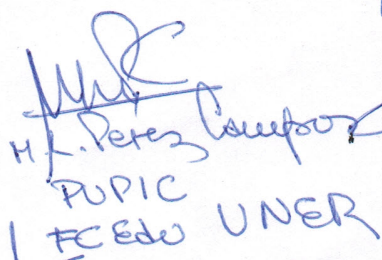 M. L. Perez Campos
PUPIC
FCEdu UNER